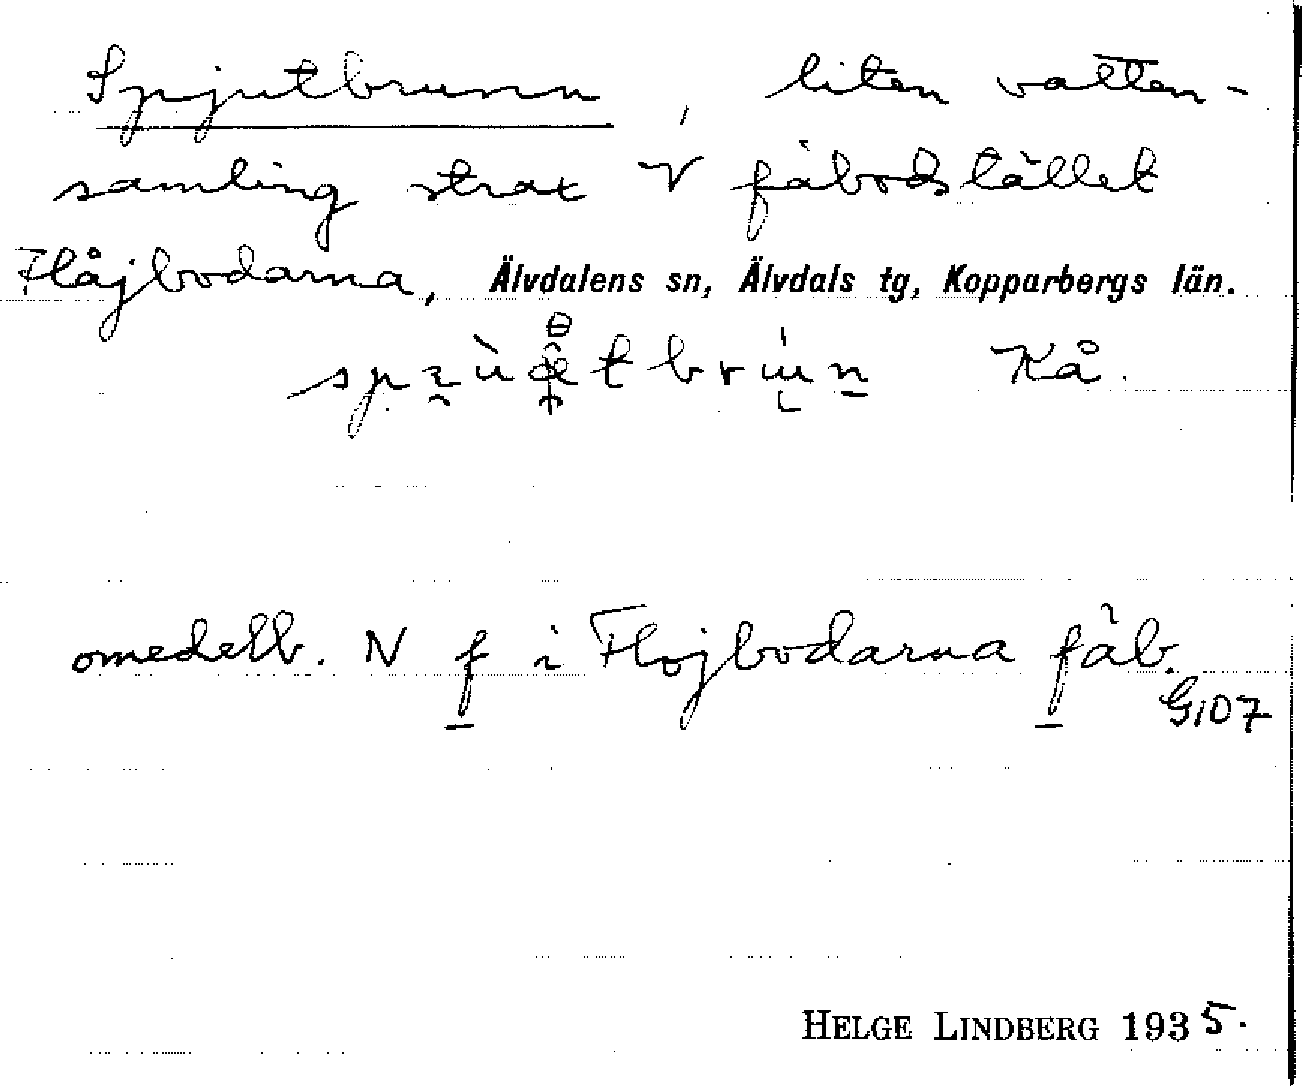 Spjutbrunn, liten vatten-
samling strax V fäbodstället
Flåjbodarna, Älvdalens sn, Älvdals tg, Kopparbergs län.
Kå.
omedelb. N f i Flojbodarna fäb.
G107
HELGE LINDBERG 1935.